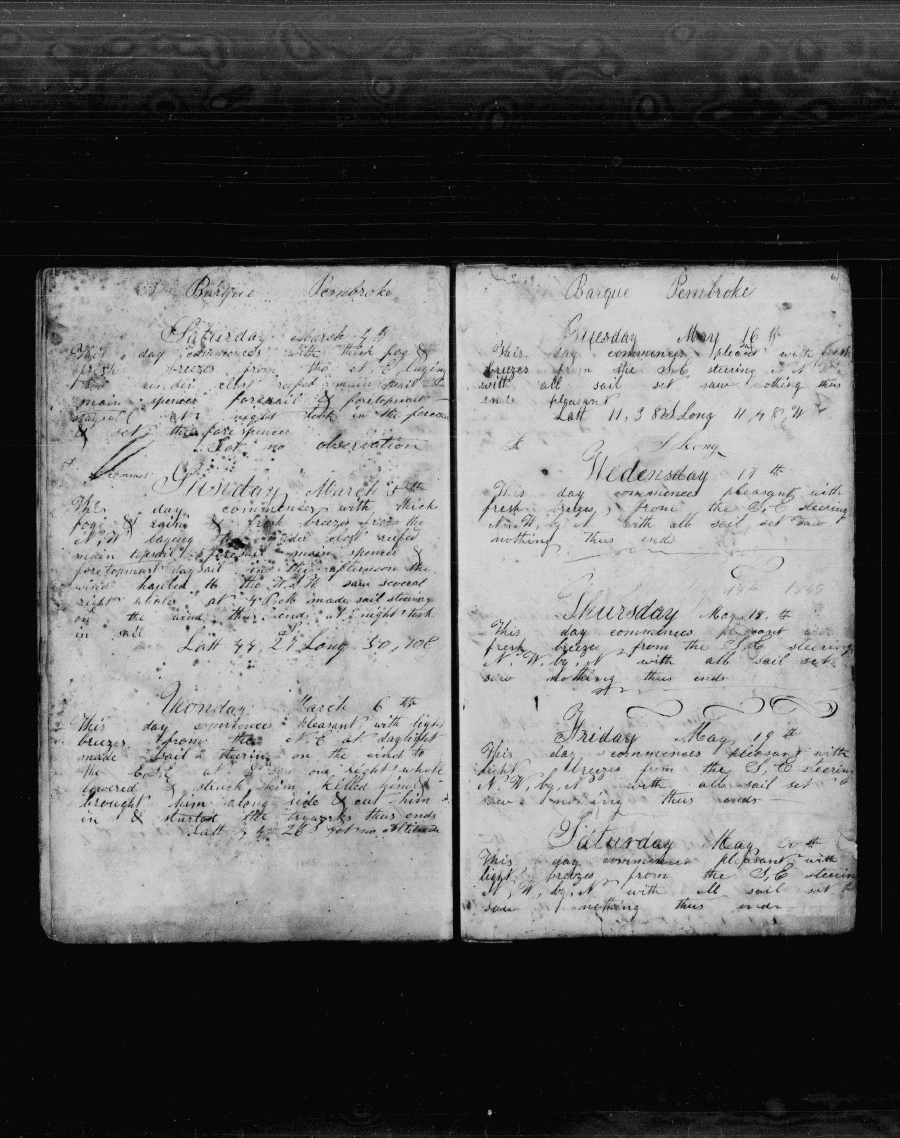 Barque Pembroke
Saturday March 4th
This day commences with thick fog &
fresh breezes from the N E laying
under clost reefed main
main spencer foresail & foretopmast
staysail at night took in the foresail
& set the fore spencer
Got no observation
Sunday March 5th
This day commences with thick
fog & rain & fresh breezes from the
N, W laying under close reefed
main topsail foresail main spencer &
foretopmast staysail in the afternoon the
wind hauled to the W.S.W saw several
right whales at 4 Ock made sail steering
on the wind thus ends at night took
in sail
Latt 44, 21 Long 50, 10 E
Monday March 6th
This day commences pleasant with light
breezes from the N E at daylight
made sail steering on the wind to
the E.S.E at saw one right whale
lowered & struck him killed
brought him along side & cut him
in & started the tryworks thus ends
Latt 44 26 S got no altitude
Barque Pembroke
61
Tuesday May 16th
This day commences pleasant with fresh
breezes from the S.E steering N W
with all sail set saw nothing thus
ends pleasant
Latt 11, 38 S Long 11, 48, W
Wedensday 17th
This day commences pleasant with
fresh breezes from the S, E steering
N. W, by N with all sail set saw
nothing thus ends
Thursday May 18th
This day commences pleasant with
fresh breezes from the S, E steering
N. W, by, N with all sail set
saw nothing thus ends
Friday May 19th
This day commences pleasant with
light breezes from the S, E steering
N. W, by, N with all sail set
saw nothing thus ends
Saturday May 20th
This day commences pleasant with
light breezes from the S, E steering
N, W, by, N with all sail set
saw nothing thus ends